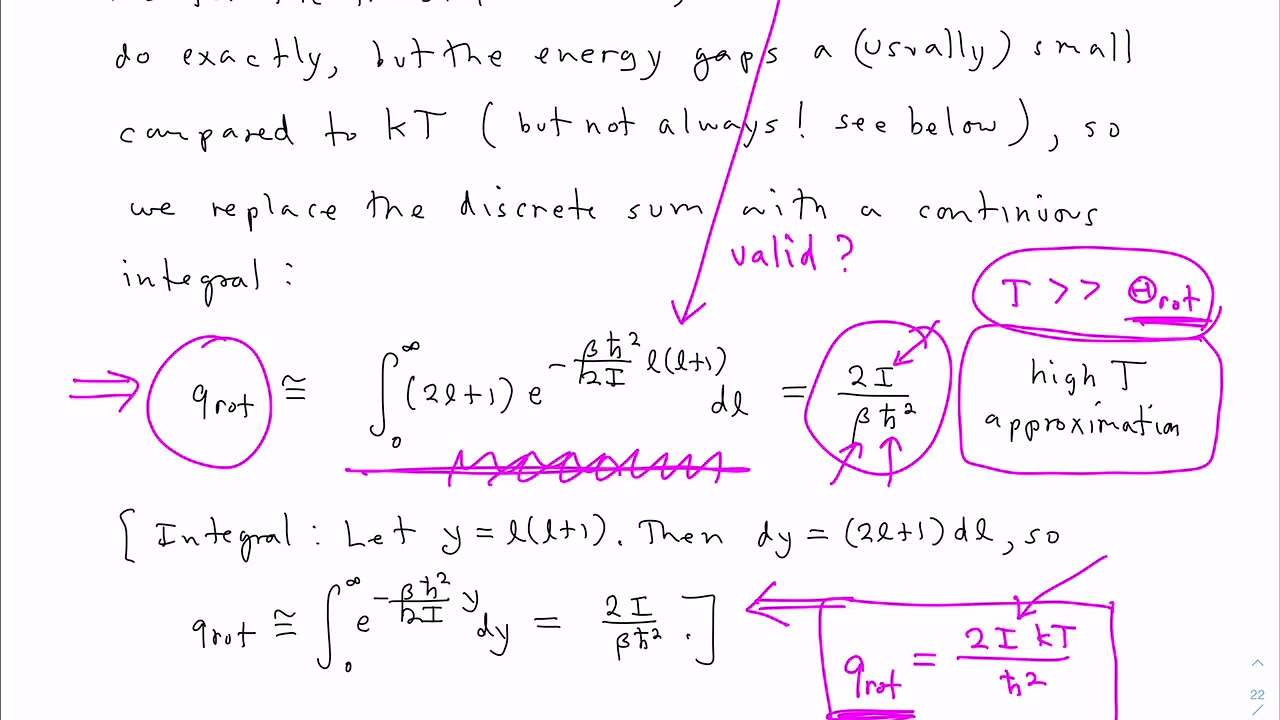 do exactly, but the energy gaps a (usually) small
compared to kT (but not always! see below), so
we replace the discrete sum with a continuous
integral:
valid?
T >> Θrot
high T
approximation
qrot ≅ ∫₀^∞ (2ℓ+1) e^{-βħ²/2I ℓ(ℓ+1)} dℓ = 2I/βħ²
[Integral: Let y = ℓ(ℓ+1). Then dy = (2ℓ+1)dℓ, so
qrot ≅ ∫₀^∞ e^{-βħ²/2I y} dy = 2I/βħ².]
qrot = 2I kT/ħ²
22